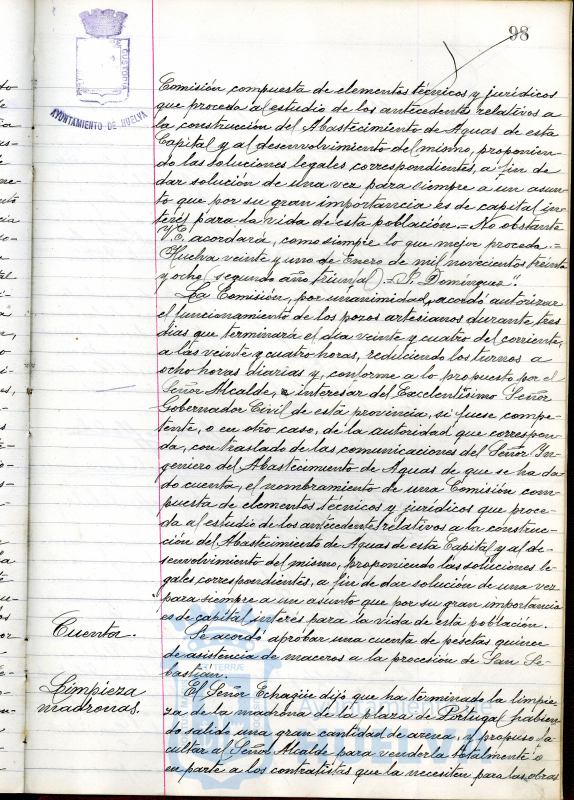 98
AYUNTAMIENTO DE HUELVA
Comisión compuesta de elementos técnicos y jurídicos
que proceda al estudio de los antecedentes relativos a
la construcción del Abastecimiento de Aguas de esta
Capital y al desenvolvimiento del mismo, proponien-
do las soluciones legales correspondientes, a fin de
dar solución de una vez para siempre a un asun-
to que por su gran importancia es de capital in-
terés para la vida de esta población.= No obstante
V.E. acordará, como siempre lo que mejor proceda.=
Huelva veinte y uno de Enero de mil novecientos treinta
y ocho (segundo año triunfal).= P. Domínguez.
La Comisión, por unanimidad, acordó autorizar
el funcionamiento de los pozos artesianos durante tres
días que terminará el día veinte y cuatro del corriente,
a las veinte y cuatro horas, reduciendo los turnos a
ocho horas diarias y, conforme a lo propuesto por el
Señor Alcalde, a interesar del Excelentísimo Señor
Gobernador Civil de esta provincia, si fuese compe-
tente, o en otro caso, de la autoridad que correspon-
da, con traslado de las comunicaciones del Señor In-
geniero del Abastecimiento de Aguas de que se ha da-
do cuenta, el nombramiento de una Comisión com-
puesta de elementos técnicos y jurídicos que proce-
da al estudio de los antecedentes relativos a la construc-
ción del Abastecimiento de Aguas de esta Capital y al de-
senvolvimiento del mismo, proponiendo las soluciones le-
gales correspondientes, a fin de dar solución de una vez
para siempre a un asunto que por su gran importancia
es de capital interés para la vida de esta población.
Cuentas.
Se acordó aprobar una cuenta de pesetas quince
de asistencia de maceros a la procesión de San Se-
bastián.
Limpieza
madronas.
El Señor Echagüe dijo que ha terminado la limpie-
za de la madrona de la plaza de Portugal habien-
do salido una gran cantidad de arena, y propuso fa-
cultar al Señor Alcalde para venderla totalmente o
en parte a los contratistas que la necesiten para las obras